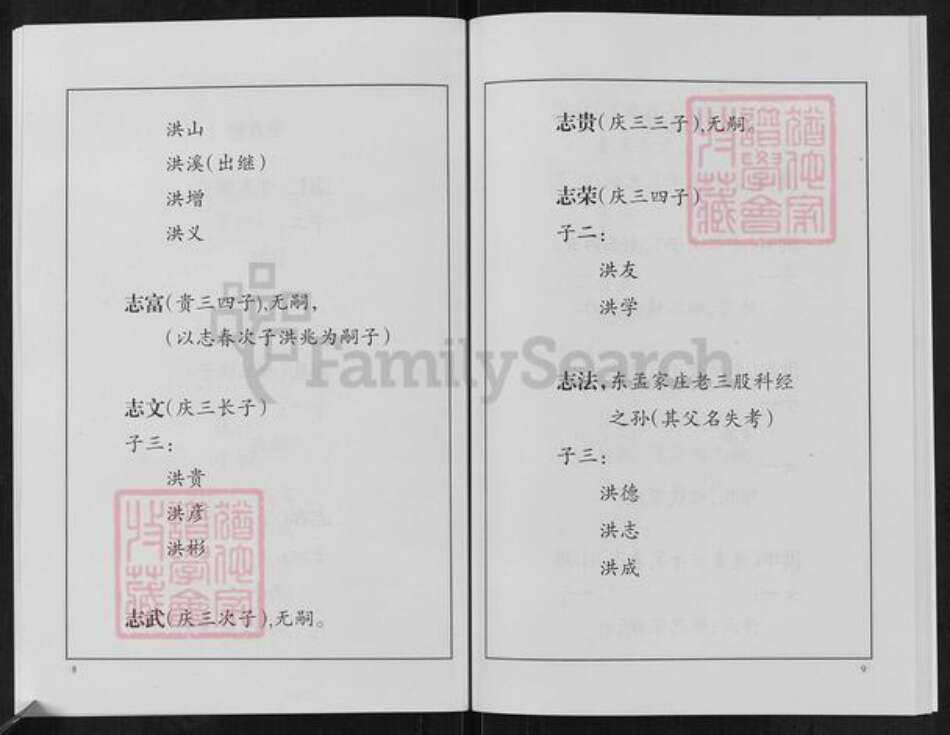 洪山
洪溪(出继)
洪增
洪义
志富(贵三四子),无嗣,
(以志春次子洪兆为嗣子)
志文(庆三长子)
子三:
洪贵
洪彦
洪彬
志武(庆三次子),无嗣。
8
志贵(庆三三子),无嗣。
志荣(庆三四子)
子二:
洪友
洪学
志法,东孟家庄老三股科经
之孙(其父名失考)
子三:
洪德
洪志
洪成
9
FamilySearch
猶他家
譜學會
收藏
猶他家
譜學會
收藏